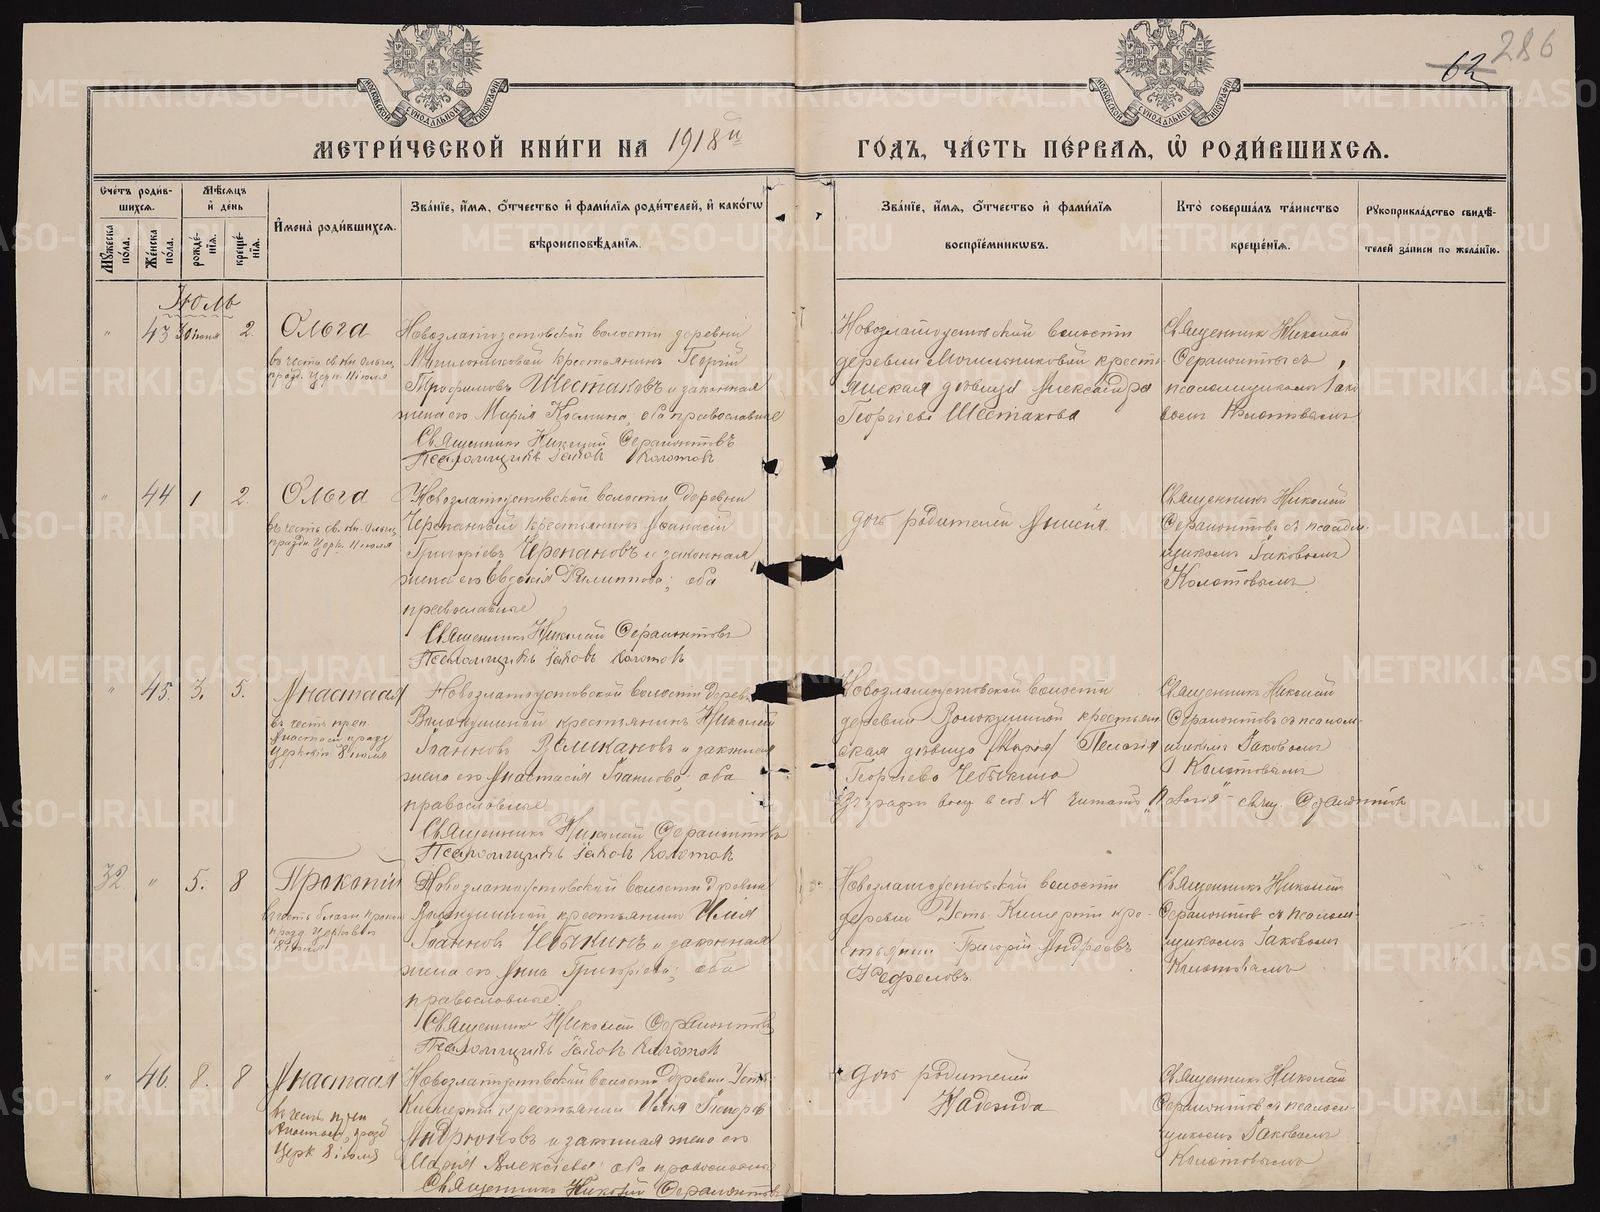 МОСКОВСКОЙ СѴНОДАЛЬНОЙ ТИПОГРАФІИ
МОСКОВСКОЙ СѴНОДАЛЬНОЙ ТИПОГРАФІИ
62 286
МЕТРИ́ЧЕСКОЙ КНИ́ГИ НА 1918й
ГО́ДЪ, ЧА́СТЬ ПЕ́РВАЯ, Ѡ҆ РОДИ́ВШИХСЯ.
Сче́тъ роди́в-
шихся.
Мꙋ́жеска по́ла.
Же́нска по́ла.
Мѣ́сяцъ
и҆ де́нь
рожде́нїя.
креще́нїя.
И҆мена̀ роди́вшихся.
Зва́нїе, и҆́мя, ѻ҆́тчество и҆ фами́лїя роди́телей, и҆ како́гѡ
вѣроисповѣ́данїя.
Зва́нїе, и҆́мя, ѻ҆́тчество и҆ фами́лїя
воспрїе́мникѡвъ.
Кто̀ соверша́лъ та́инство
креще́нїя.
Рꙋкоприкла́дство свидѣ́-
телей за́писи по жела́нїю.
Іюль
" 43 30 июня 2 Ольга
въ честь св. кн. Ольги,
празд. Церк. 11 іюля
Новозлатоустовской волости деревни
крестьянинъ Георгій
Трофимовъ Шестаковъ и законная
жена его Марія Козмина, оба православные
Священникъ Николай Серапіонтовъ
Псаломщикъ Іаковъ Колотовъ
Новозлатоустовской волости
деревни кресть-
янская дѣвица Александра
Георгіева Шестакова
Священникъ Николай
Серапіонтовъ съ
псаломщикомъ Іако
вомъ Колотовымъ
" 44 1 2. Ольга
въ честь св. кн. Ольги,
праздн. Церк. 11 іюля
Новозлатоустовской волости деревни
Черепановой крестьянинъ Афанасій
Григоріевъ Черепановъ и законная
жена его Евдокія Филиппова; оба
православные
Священникъ Николай Серапіонтовъ
Псаломщикъ Іаковъ Колотовъ
дочь родителей
Священникъ Николай
Серапіонтовъ съ псалом-
щикомъ Іаковомъ
Колотовымъ
" 45. 3. 5. Анастасія
въ честь преп.
Анастасіи празд
Церковью 8 іюля
Новозлатоустовской волости дерев.
крестьянинъ Николай
Іоанновъ Великановъ и законная
жена его Анастасія Іоаннова; оба
православные
Священникъ Николай Серапіонтовъ
Псаломщикъ Іаковъ Колотовъ
Новозлатоустовской волости
деревни крестьян
ская дѣвица (Марія) Пелагія
Георгіева Чебыкина
Священникъ Николай
Серапіонтовъ съ псалом-
щикомъ Іаковомъ
Колотовымъ
32 " 5. 8 Прокопій
въ честь блаж. Прокоп
празд Церковью
8 іюля
Новозлатоустовской волости деревни
крестьянинъ Илія
Іоанновъ Чебыкинъ и законная
жена его Анна Григоріева; оба
православные
Священникъ Николай Серапіонтовъ
Псаломщикъ Іаковъ Колотовъ
Новозлатоустовской волости
деревни Усть-Кишерти кре-
стьянинъ Григорій Андреевъ
Священникъ Николай
Серапіонтовъ съ псалом-
щикомъ Іаковомъ
Колотовымъ
" 46. 8. 8 Анастасія
въ честь преп
Анастасіи празд
Церк 8 іюля
Новозлатоустовской волости деревни Усть-
Кишерти крестьянинъ Илія
и законная жена его
Марія Алексіева; оба православные
Священникъ Николай Серапіонтовъ
дочь родителей
Надежда
Священникъ Николай
Серапіонтовъ съ псалом-
щикомъ Іаковомъ
Колотовымъ
METRIKI.GASO-URAL.RU